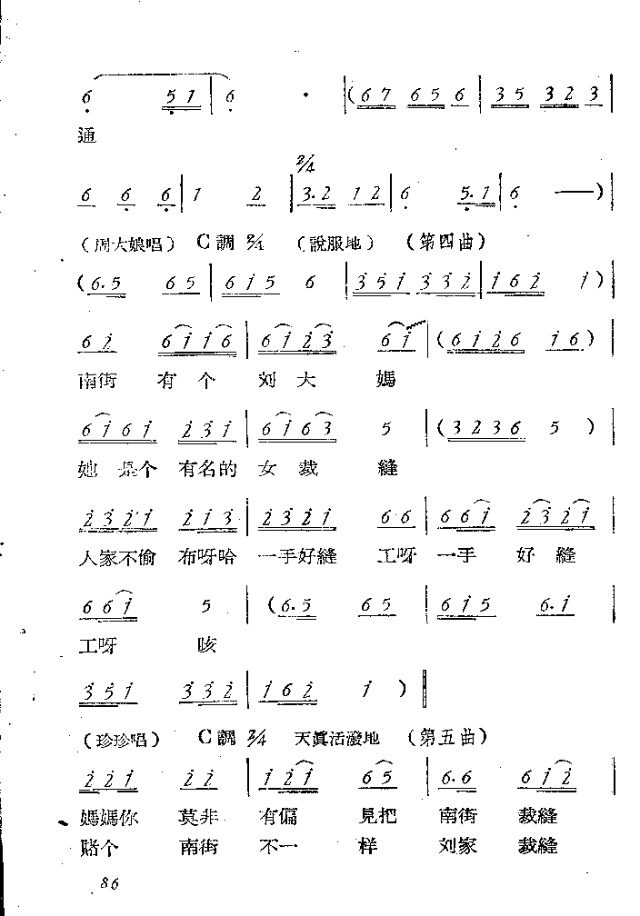 6 5 1 | 6 · | (6 7 6 5 6 | 3 5 3 2 3 |
通
2/4
6 6 6 | 1 2 | 3.2 1 2 | 6 5.1 | 6 —) |
(周大娘唱) C調 2/4 (說服地) (第四曲)
(6.5 6 5 | 6 i 5 6 | 3 5 i 3 3 2 | i 6 2 i) |
6 i 6 i i 6 | 6 i 2 3 6 i | (6 i 2 6 i 6) |
南街 有个 刘大 媽
6 i 6 i 2 3 i | 6 i 6 3 5 | (3 2 3 6 5) |
她是个 有名的 女裁 縫
2 3 2 i 2 i 3 | 2 3 2 i 6 6 | 6 6 i 2 3 2 i |
人家不偷 布呀哈 一手好縫 工呀 一手 好縫
6 6 i 5 | (6.5 6 5 | 6 i 5 6.i |
工呀 咳
3 5 i 3 3 2 | i 6 2 i) ‖
(珍珍唱) C調 2/4 天眞活潑地 (第五曲)
2 2 i 2 2 | i 2 i 6 5 | 6.6 6 i 2 |
媽媽你 莫非 有偏 見把 南街 裁縫
賭个 南街 不一 样 刘家 裁縫
86